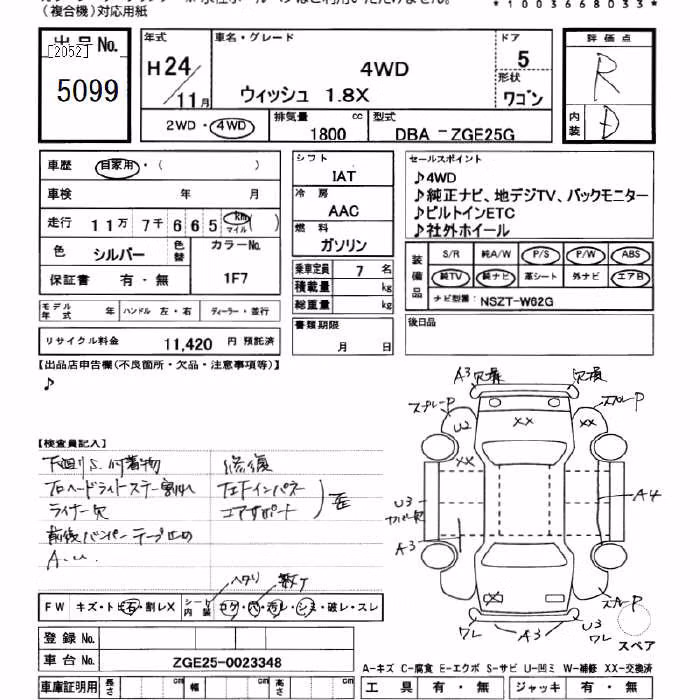 (複合機)対応用紙
*1003668033*
出品No.
[2052]
5099
年式
H24/11月
車名・グレード
4WD
ウィッシュ 1.8X
ドア
5
形状
ワゴン
評価点
R
内装
D
2WD・4WD
排気量
1800 cc
型式
DBA - ZGE25G
車歴 自家用・( )
車検 年 月
走行 11万 7千 6 6 5 km マイル ( )
色 シルバー 色替 カラーNo. 1F7
保証書 有・無
モデル年式 年 ハンドル 左・右 ディーラー・並行
リサイクル料金 11,420 円 預託済
シフト
IAT
冷房
AAC
燃料
ガソリン
乗車定員 7 名
積載量 kg
総重量 kg
書類期限
月 日
セールスポイント
♪4WD
♪純正ナビ、地デジTV、バックモニター
♪ビルトインETC
♪社外ホイール
装備品
S/R 純A/W P/S P/W ABS
純TV 純ナビ 革シート 外ナビ エアB
ナビ型番: NSZT-W62G
後日品
【出品店申告欄(不良箇所・欠品・注意事項等)】
♪
【検査員記入】
下廻りS.付着物
ライナー欠
前後バンパーテープ止め
A.u.
修復
左Fインパネ
コアサポート
歪
ヘタリ
FW キズ・トビ石・割レX シート内装 コゲ・穴・汚レ・シミ・破レ・スレ
登録No.
車台No. ZGE25-0023348
車庫証明用 長さ cm 幅 cm 高さ cm
A3 欠損
欠損
スプレーP
スプレーP
U2
XX
XX
XX
U3
カバー欠
A3
A4
XX
スプレーP
ワレ
A3
U3
ワレ
スペア
A-キズ C-腐食 E-エクボ S-サビ U-凹ミ W-補修 XX-交換済
工具 有・無 ジャッキ 有・無